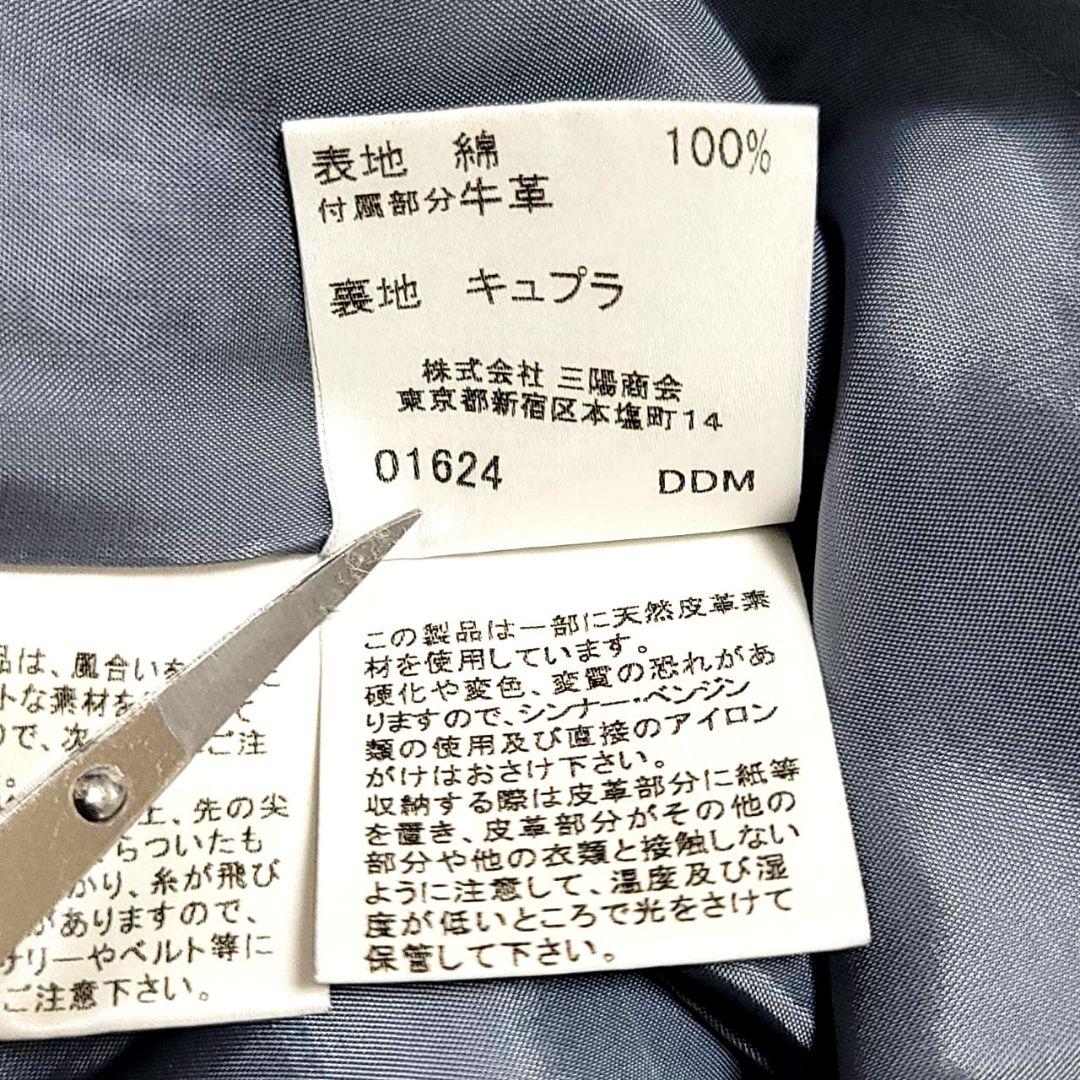 表地 綿 100%
付属部分牛革
裏地 キュプラ
株式会社 三陽商会
東京都新宿区本塩町14
01624 DDM
この製品は一部に天然皮革素
材を使用しています。
硬化や変色、変質の恐れがあ
りますので、シンナー・ベンジン
類の使用及び直接のアイロン
がけはおさけ下さい。
収納する際は皮革部分に紙等
を置き、皮革部分がその他の
部分や他の衣類と接触しない
ように注意して、温度及び湿
度が低いところで光をさけて
保管して下さい。
品は、風合いを
トな素材を
ので、次 ご注
。
上、先の尖
らついたも
かり、糸が飛び
がありますので、
サリーやベルト等に
ご注意下さい。